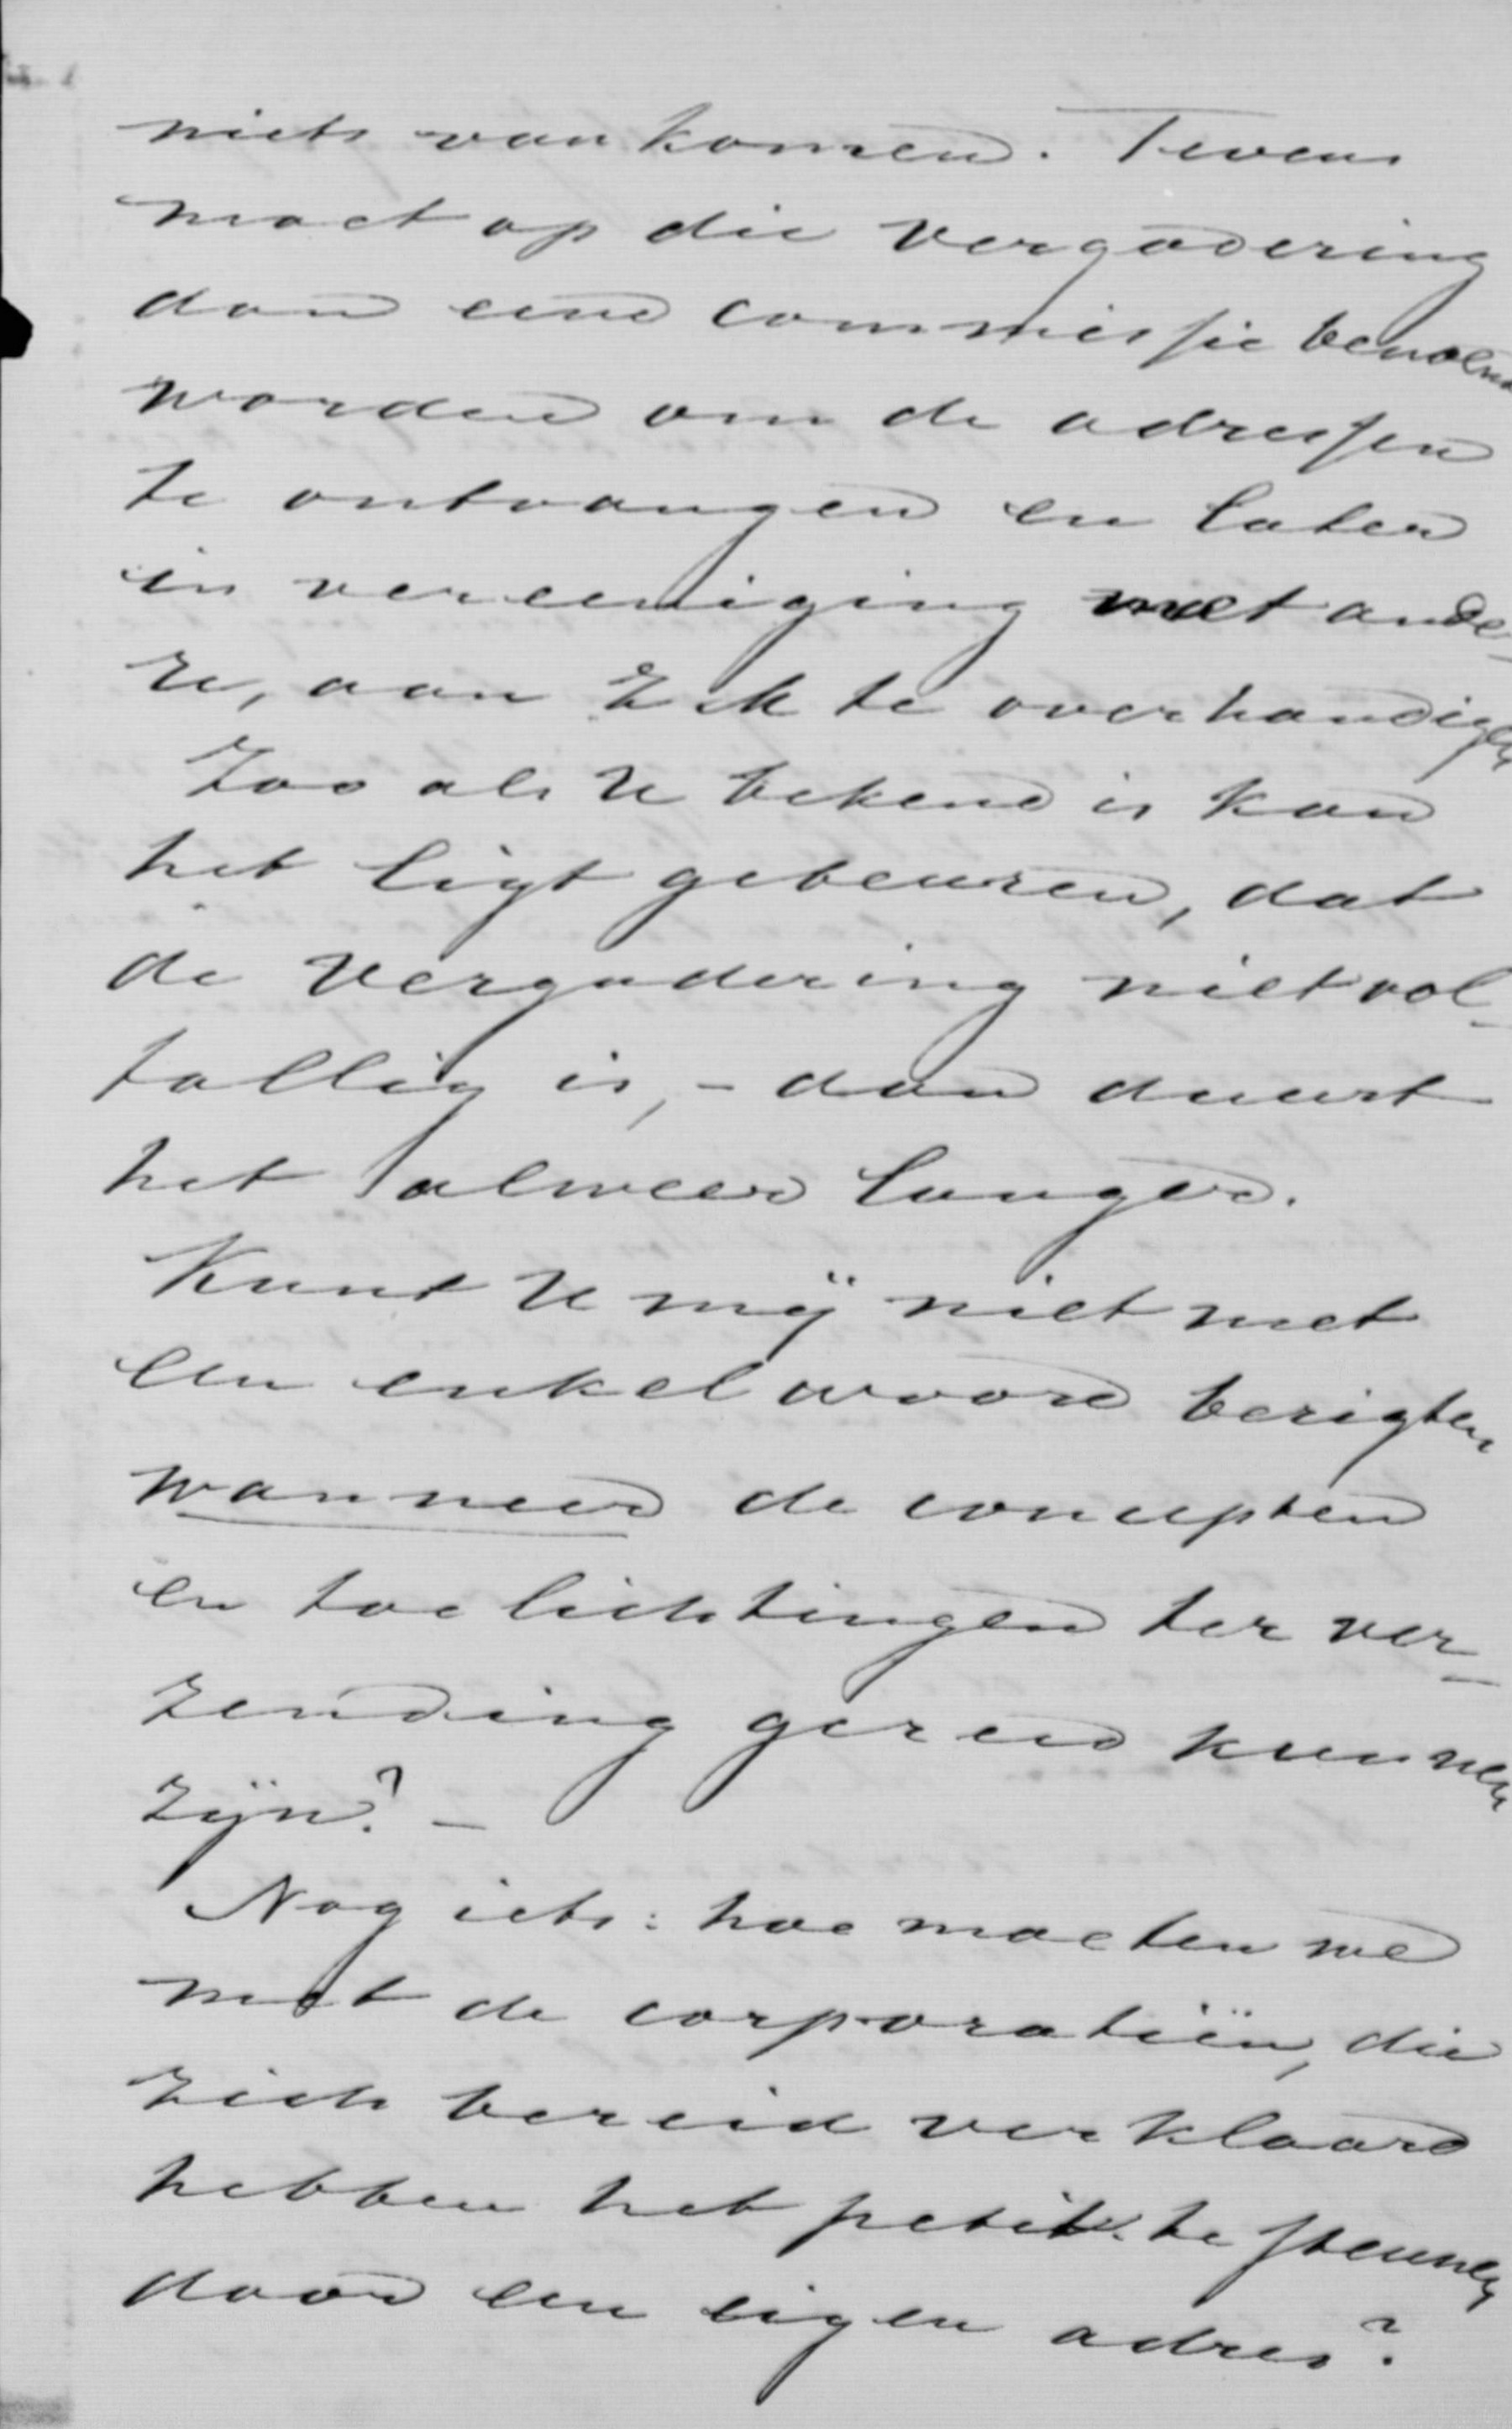 niets van komen. Tevens
moet op die Vergadering
dan eene commissie benoemd
worden om de adressen
te ontvangen en later
in vereeniging met ande-
re, aan ZM te overhandigen
Zoo als U bekend is kan
het ligt gebeuren, dat
de Vergadering niet vol-
tallig is, - dan duurt
het alweer langer.
Kunt U mij niet met
een enkel woord berigten
wanneer de concepten
en toelichtingen ter ver-
zending gereed kunnen
zijn? -
Nog iets: hoe moeten we
met de corporatiën, die
zich bereid verklaard
hebben het petit. te steunen
door een eigen adres?